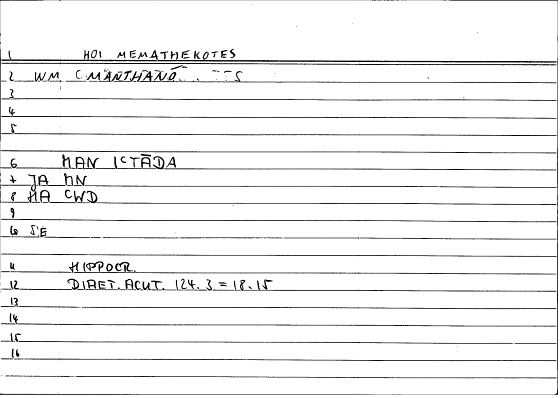 1 HOI MEMATHEKOTES
2 WM CMANTHANO
3
4
5
6 MAN ICTĀDA
7 JA MN
8 MA CWD
9
10 SE
11 HIPPOCR.
12 DIAET. ACUT. 124.3 = 18.15
13
14
15
16